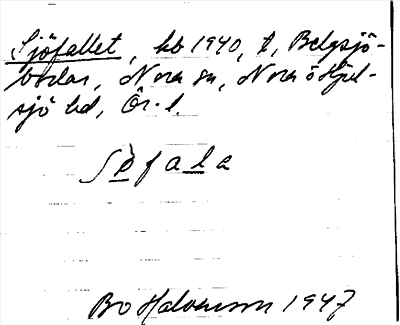 Sjöfallet, kb 1940, t, Belgsjö-
bodar, Nora sn, Nora o Hjul-
sjö bd, Ör. l.
Söfala
Bo Halvorson 1947